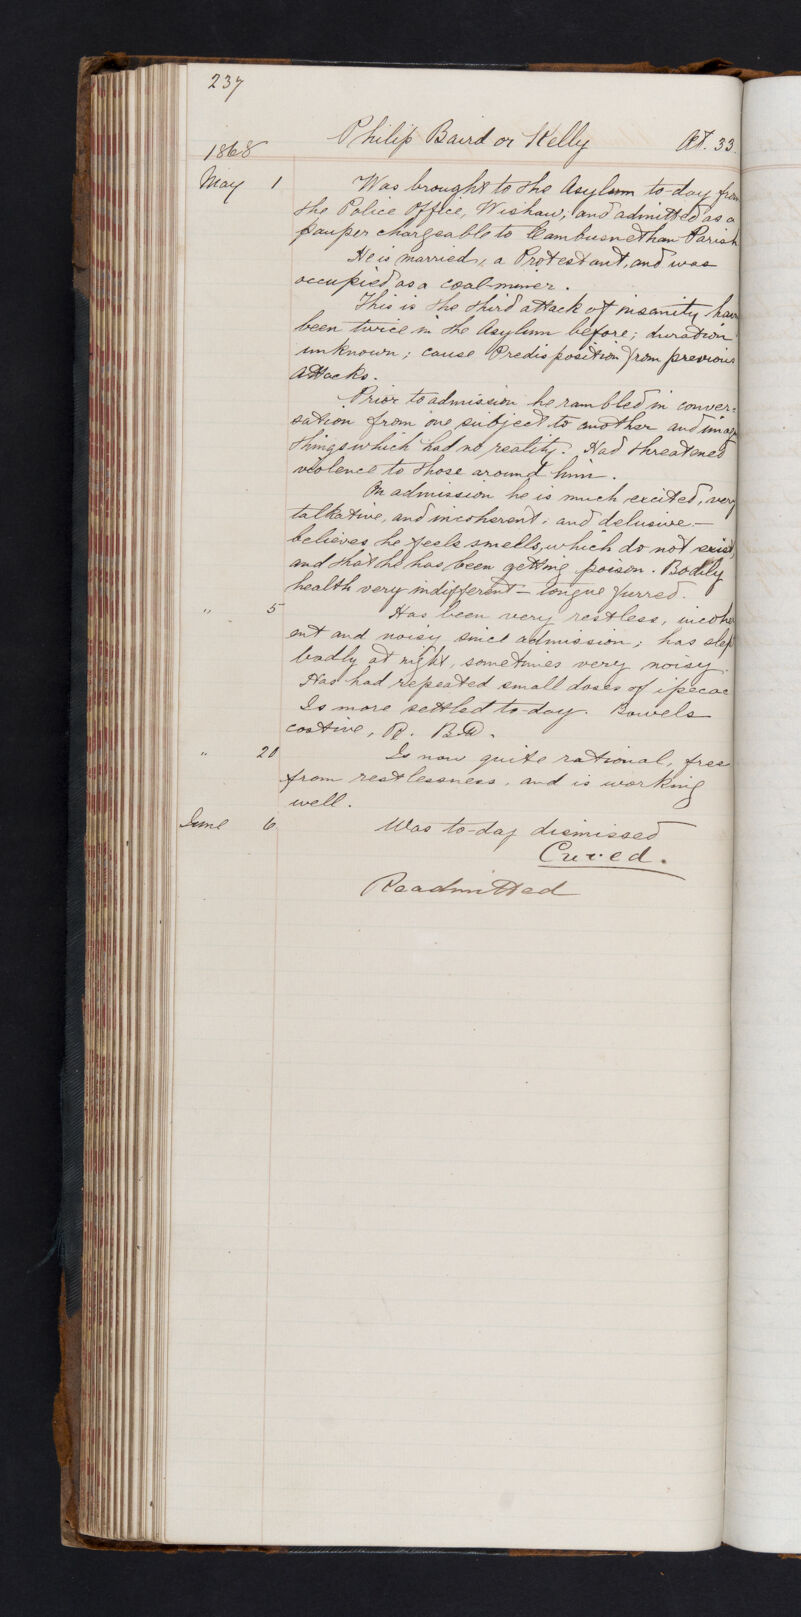 237
Philip Baird or Kelly Æt. 33
1868
May 1 Was brought to the Asylum to-day from
the Police Office, Wishaw, and admitted as a
pauper chargeable to Cambusnethan Parish
He is married, a Protestant, and was
occupied as a coal-miner.
This is the third attack of insanity hav
been twice in the Asylum before; duration
unknown; cause Predisposition from previous
attacks.
Prior to admission he rambled in conver=
sation from one subject to another and imag
things which had no reality. Had threatened
violence to those around him.
On admission he is much excited, very
talkative, and incoherent; and delusive—
believes he feels smells, which do not exist,
and that he has been getting poison. Bodily
health very indifferent — tongue furred.
" 5 Has been very restless, incoher
ent and noisy since admission; has slep
badly at night, sometimes very noisy.
Has had repeated small doses of ipecac
Is more settled to-day. Bowels
costive,
" 20 Is now quite rational, free
from restlessness, and is working
well.
June 6 Was to-day dismissed
Cured.
Readmitted